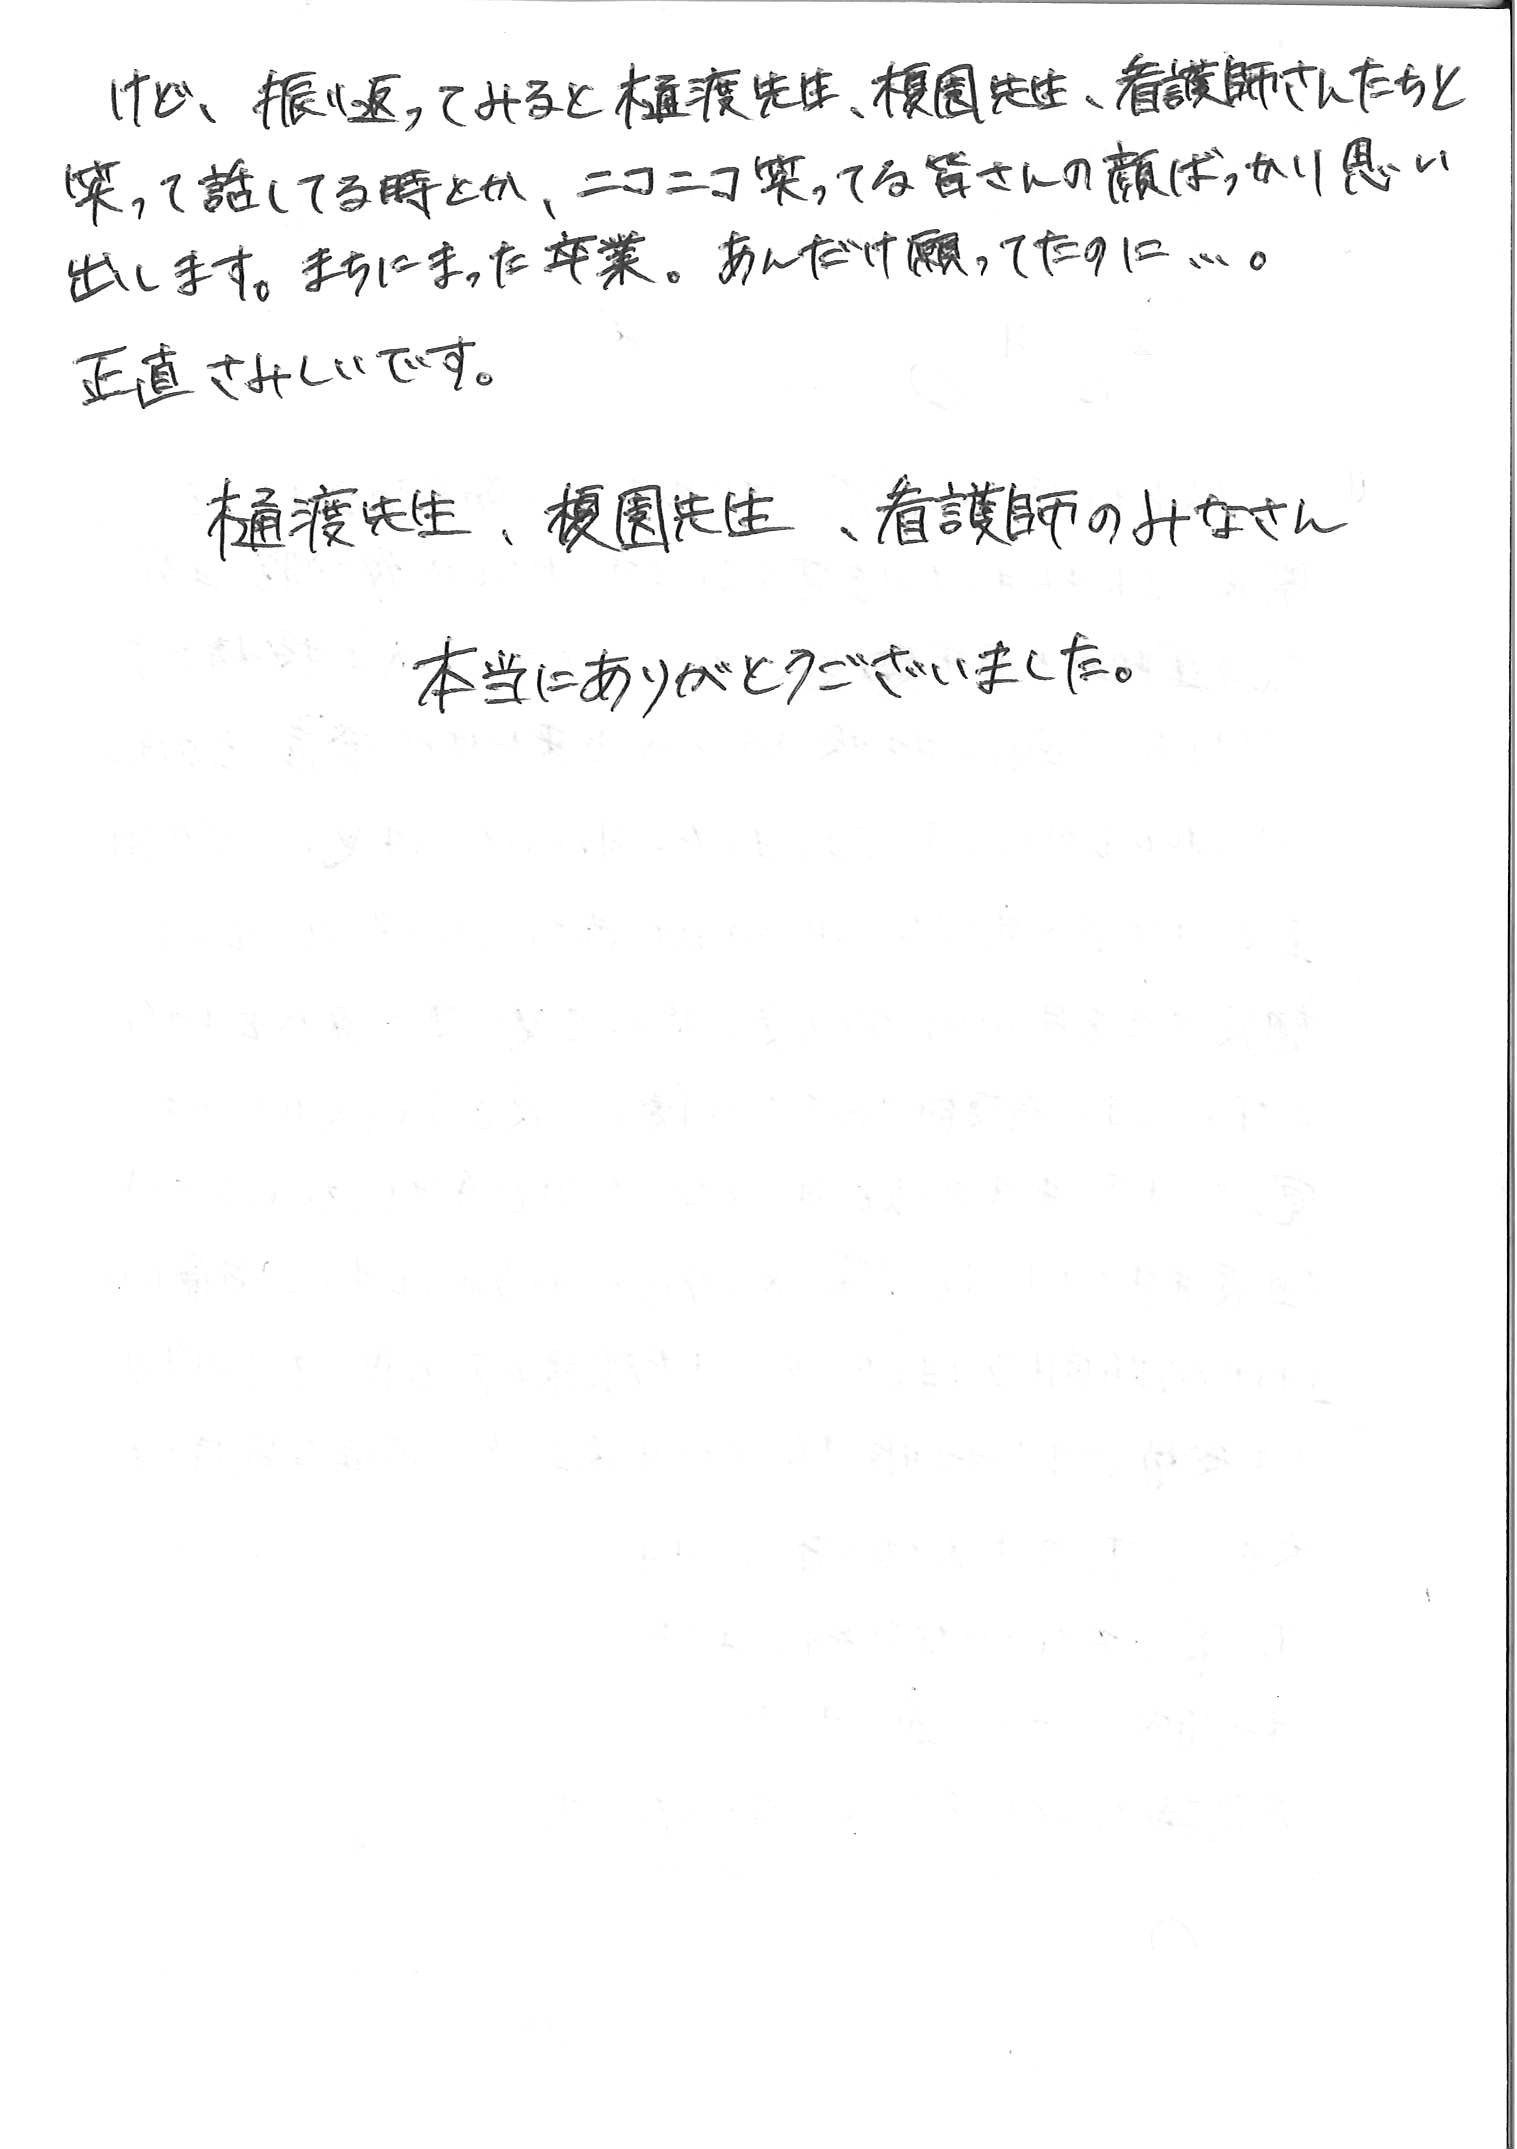 けど、振り返ってみると樋渡先生、榎園先生、看護師さんたちと
笑って話してる時とか、ニコニコ笑ってる皆さんの顔ばっかり思い
出します。まちにまった卒業。あんだけ願ってたのに…。
正直さみしいです。
樋渡先生、榎園先生、看護師のみなさん
本当にありがとうございました。